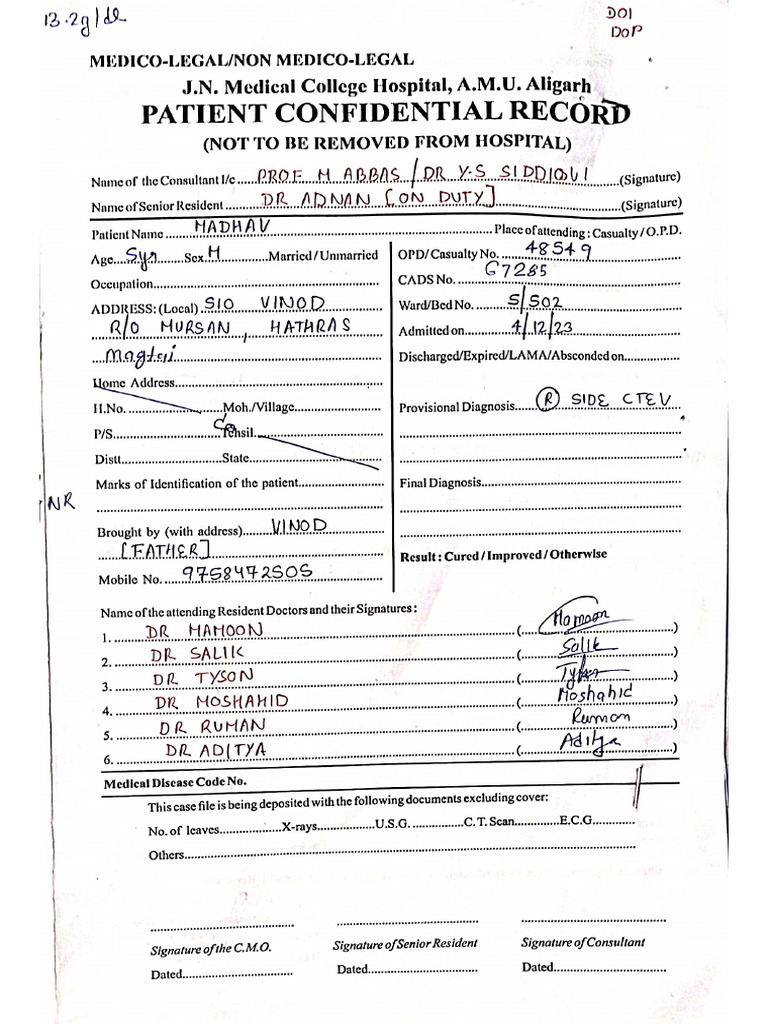 13.2g/dl
DOI
DOP
MEDICO-LEGAL/NON MEDICO-LEGAL
J.N. Medical College Hospital, A.M.U. Aligarh
PATIENT CONFIDENTIAL RECORD
(NOT TO BE REMOVED FROM HOSPITAL)
Name of the Consultant I/c PROF M ABBAS / DR Y.S SIDDIQUI (Signature)
Name of Senior Resident DR ADNAN [ON DUTY] (Signature)
Patient Name MADHAV Place of attending : Casualty / O.P.D.
Age 5yr Sex M Married / Unmarried
Occupation
ADDRESS: (Local) S/O VINOD
R/O MURSAN, HATHRAS
Home Address
H.No. Moh./Village
P/S Tehsil
Distt. State
Marks of Identification of the patient
NR
Brought by (with address) VINOD
[FATHER]
Mobile No. 9758472505
OPD/Casualty No. 48549
CADS No. G7285
Ward/Bed No. 5/502
Admitted on 4/12/23
Discharged/Expired/LAMA/Absconded on
Provisional Diagnosis (R) SIDE CTEV
Final Diagnosis
Result : Cured / Improved / Otherwise
Name of the attending Resident Doctors and their Signatures :
1. DR MAMOON (Mamoon)
2. DR SALIK (Salik)
3. DR TYSON ( )
4. DR MOSHAHID Moshahid
5. DR RUMAN Ruman
6. DR ADITYA (Aditya)
Medical Disease Code No.
This case file is being deposited with the following documents excluding cover:
No. of leaves X-rays U.S.G. C.T. Scan E.C.G.
Others
Signature of the C.M.O. Signature of Senior Resident Signature of Consultant
Dated Dated Dated